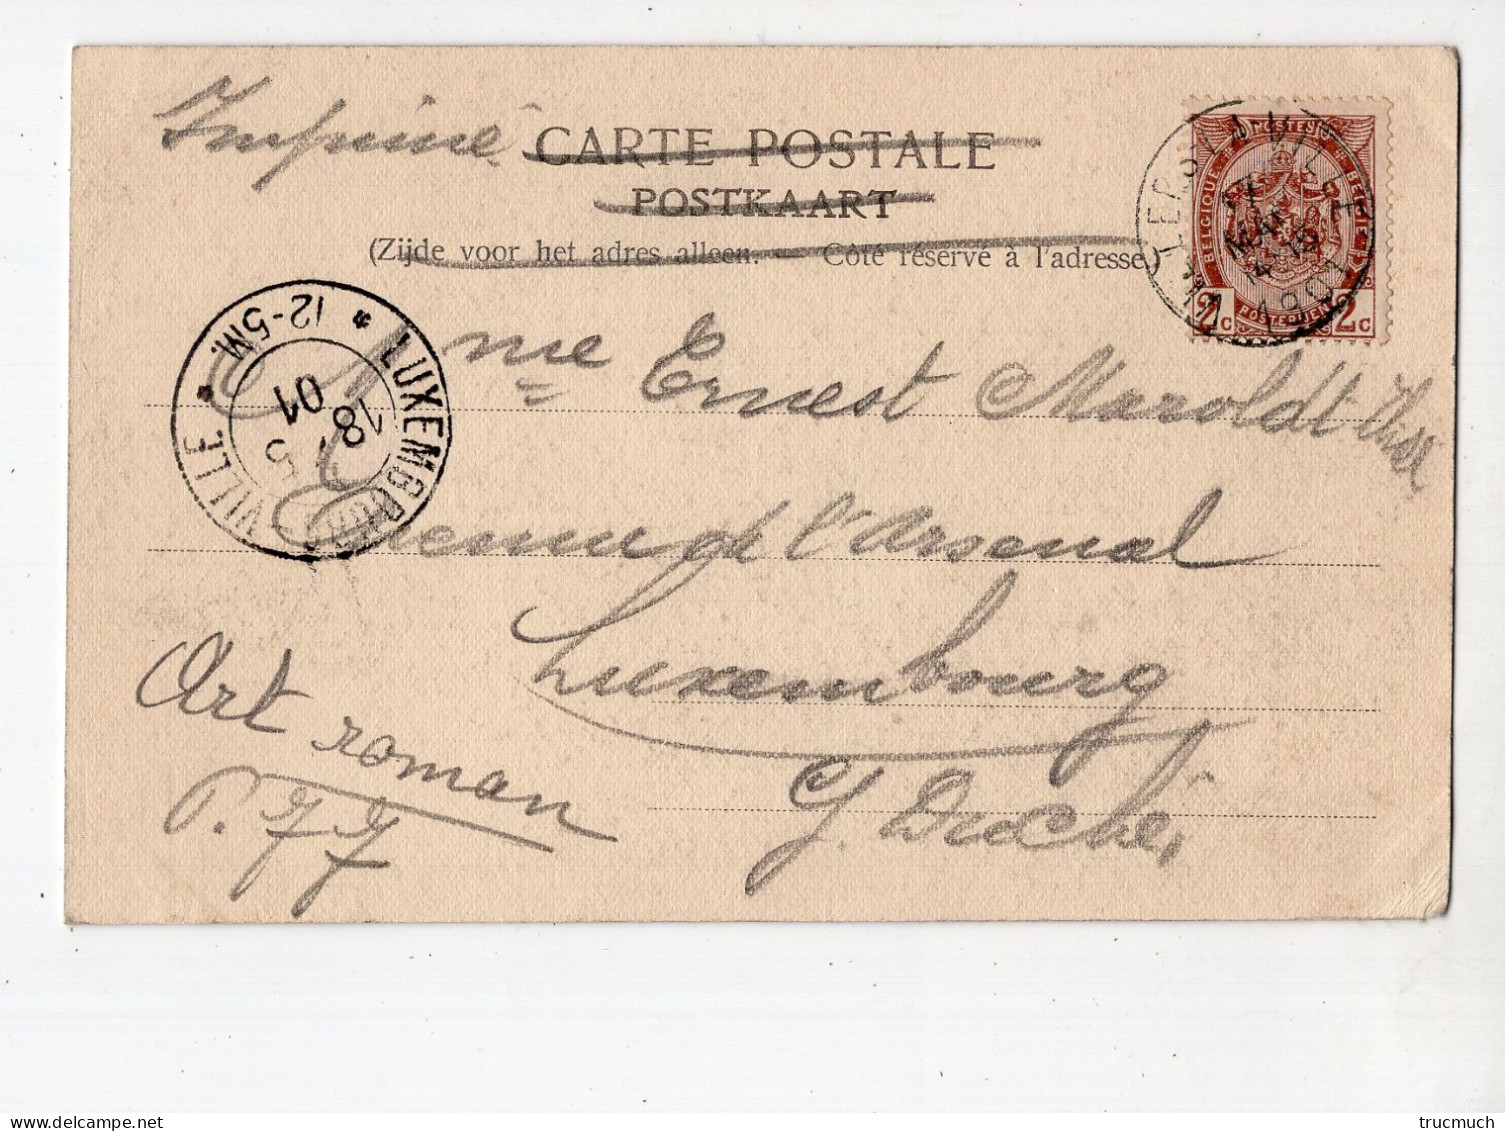 Imprimé
CARTE POSTALE
POSTKAART
(Zijde voor het adres alleen. — Côté réservé à l'adresse.)
BELGIQUE POSTES BELGIË
POSTERIJEN
2c 2c
VILLERS-LA-VILLE
17 MAI 14-15 1901
LUXEMBOURG-VILLE
12-5M.
18 5 01
Mme Ernest Maroldt
Avenue de l'Arsenal
Luxembourg
G. Duché.
Art roman
P. 
trucmuch